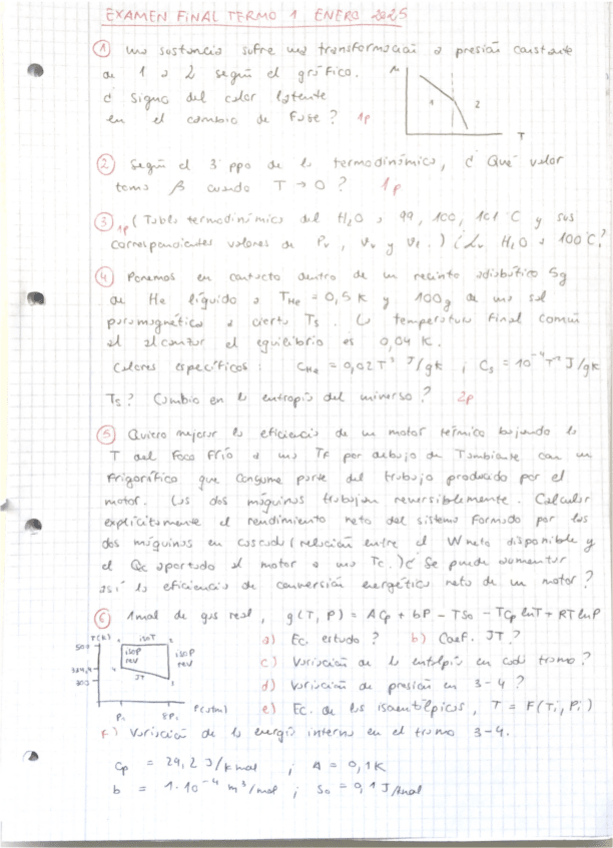 EXAMEN FINAL TERMO 1 ENERO 2025
① una sustancia sufre una transformación a presión constante
de 1 a 2 según el gráfico.
¿ Signo del calor latente
en el cambio de fase ? 1p
μ
1
2
T
② Según el 3er ppo de la termodinámica, ¿ Qué valor
toma β cuando T → 0 ? 1p
③ 1p (Tabla termodinámica del H₂O a 99, 100, 101 °C y sus
correspondientes valores de Pv, vv y vl.) ¿Lv H₂O a 100°C?
④ Ponemos en contacto dentro de un recinto adiabático 5g
de He líquido a THe = 0,5 K y 100g de una sal
paramagnética a cierta Ts. La temperatura final común
al alcanzar el equilibrio es 0,04 K.
Calores específicos: CHe = 0,02T³ J/gK ; Cs = 10⁻⁴T⁻² J/gK
Ts? Cambio en la entropía del universo? 2p
⑤ Quiero mejorar la eficiencia de un motor térmico bajando la
T del foco frío a una TF por debajo de Tambiente con un
frigorífico que consume parte del trabajo producido por el
motor. Las dos máquinas trabajan reversiblemente. Calcular
explícitamente el rendimiento neto del sistema formado por las
dos máquinas en cascada (relación entre el Wneto disponible y
el Qc aportado al motor a una Tc.) ¿ Se puede aumentar
así la eficiencia de conversión energética neta de un motor?
⑥ 1mol de gas real, g(T, P) = ACp + bP - TS₀ - TCp lnT + RT lnP
a) Ec. estado ? b) Coef. JT ?
c) Variación de la entalpía en cada tramo?
d) Variación de presión en 3-4 ?
e) Ec. de las isoentálpicas, T = F(Ti, Pi)
T(K)
isoT
isoP
rev
isoP
rev
JT
300
P(atm)
P₁
8P₁
f) Variación de la energía interna en el tramo 3-4.
Cp = 29,2 J/Kmol ; A = 0,1K
b = 1·10⁻⁴ m³/mol ; S₀ = 0,1 J/Kmol